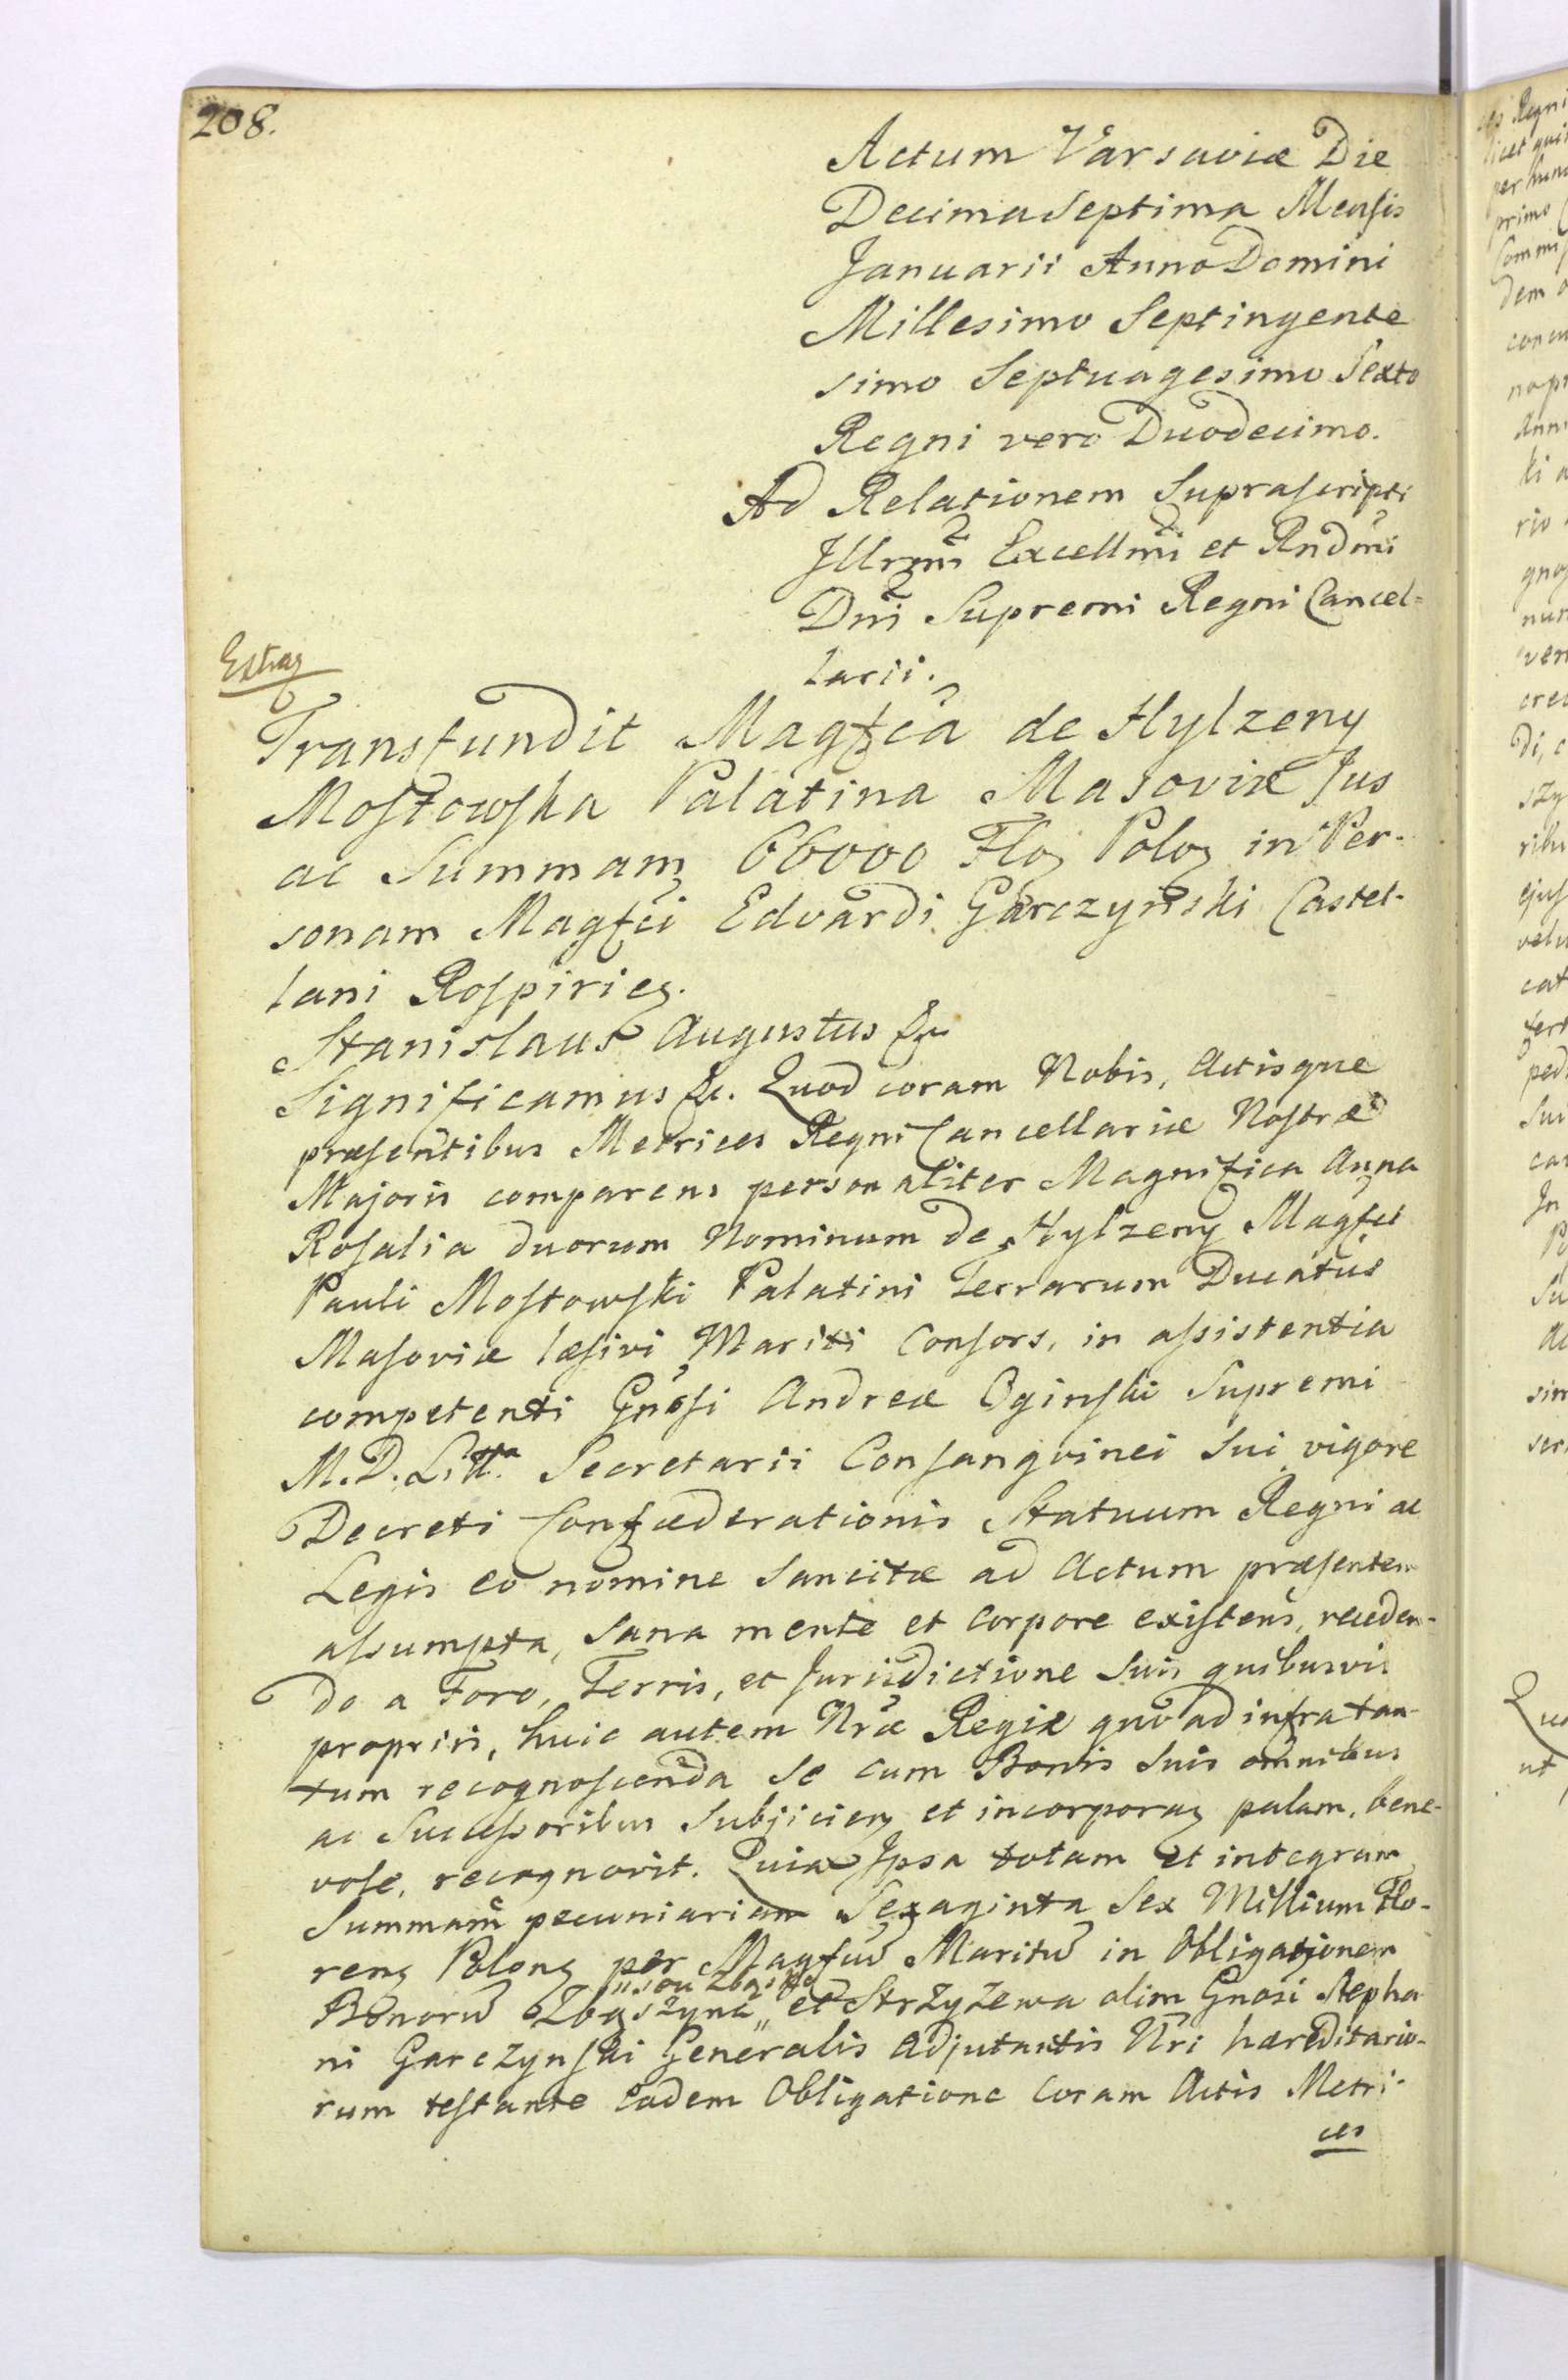 208.
Actum Varsaviæ Die
Decima Septima Mensis
Januarii Anno Domini
Millesimo Septingente
simo Septuagesimo Sexto
Regni vero Duodecimo.
Ad Relationem Suprascripti
Illrmi Excellmi et Rndmi
Dni Supremi Regni Cancel=
larii.
Transfundit Magfca de Hylzeny
Mostowska Palatina Masoviæ Jus
ac Summam 66000 Flo Polo in Per-
sonam Magfci Edvardi Garczyński Castel-
lani Rospirien.
Stanislaus Augustus &c
Significamus &c. Quod coram Nobis, Actisque
præsentibus Metrices Regni Cancellariæ Nostræ
Majoris comparens personaliter Magnifica Anna
Rosalia duorum Nominum de Hylzeny Magfci
Pauli Mostowski Palatini Terrarum Ducatus
Masoviæ læsivi Mariti Consors, in assistentia
competenti Gnosi Andreæ Oginski Supremi
M. D. Litt. Secretarii Consangvinei Sui vigore
Decreti Confæderationis Statuum Regni ac
Legis eo nomine Sancitæ ad Actum præsentem
assumpta, Sana mente et Corpore existens, receden-
do a Foro, Terris, et Jurisdictione Suis quibusvis
propriis, huic autem Nræ Regiæ quo ad infra tan-
tum recognoscenda Se cum Bonis Suis omnibus
ac Successoribus Subjicien et incorporan palam, bene-
vole, recognovit. Quia Ipsa totam et integram
Summam pecuniariam Sexaginta Sex Millium Flo-
ren Polon per Magfum Maritum in Obligationem
Bonorum Zbąszyna "et Strzyżewa olim Gnosi Stepha
ni Garczynski Generalis Adjutantis Nri hæreditario-
rum testante eadem Obligatione Coram Actis Metri-
ces